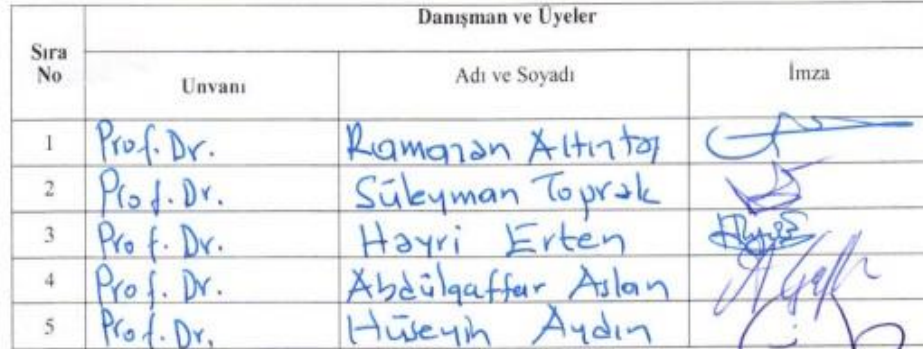 Danışman ve Üyeler
Sıra No Unvanı Adı ve Soyadı İmza
1 Prof. Dr. Ramazan Altıntaş
2 Prof. Dr. Süleyman Toprak
3 Prof. Dr. Hayri Erten
4 Prof. Dr. Abdülgaffar Aslan
5 Prof. Dr. Hüseyin Aydın